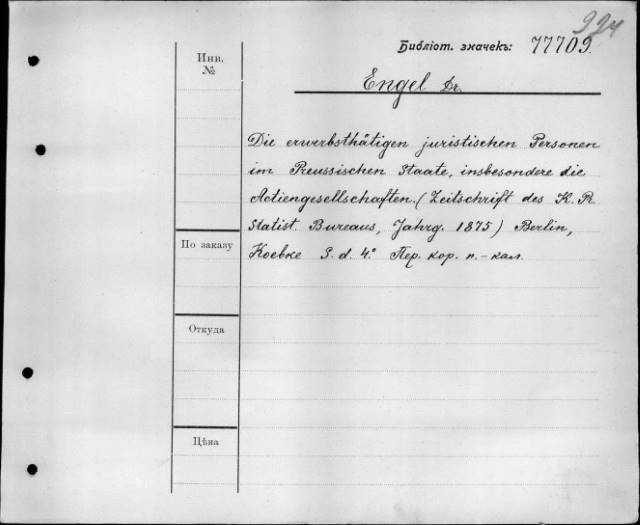 994
Библіот. значекъ: 77709.
Инв.
№
Engel Dr.
Die erwerbsthätigen juristischen Personen
im Preussischen Staate, insbesondere die
Actiengesellschaften. (Zeitschrift des K. Pr.
Statist. Bureaus, Jahrg. 1875) Berlin,
Koebke S. d. 4.° Пер. кор. п.-кал.
По заказу
Откуда
Цѣна